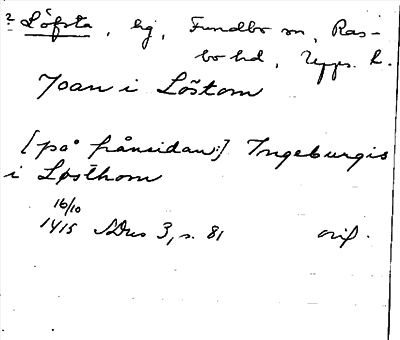 ? Löfsta, hg, Fundbo sn, Ras-
bo hd, Upps. l.
Joan i Löstom
[på frånsidan:] Ingeburgis
i Løsthom
16/10
1415 SDns 3, s. 81 orig.